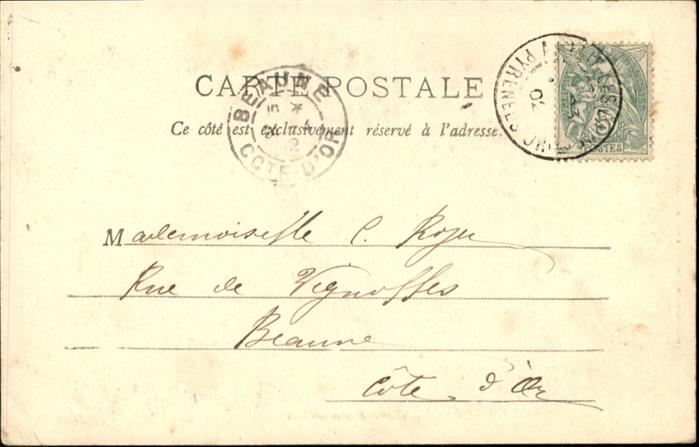 CARTE POSTALE
Ce côté est exclusivement réservé à l'adresse.
BEAUNE
COTE-D'OR
PYRENEES
02
POSTES
Mademoiselle C. Royer
Rue de Vignolles
Beaune
Côte d'Or